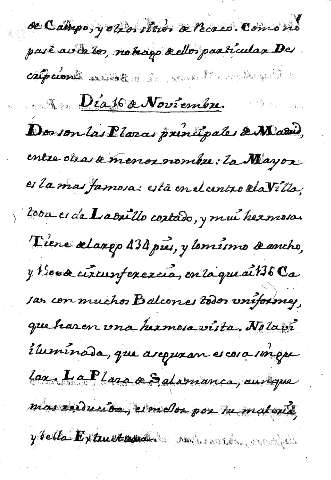 de Campo, y otros sitios de Recreo. Como no
pasé a verlos, no traigo de ellos particular Des
cripcion.
Dia 16 de Noviembre.
Dos son las Plazas principales de Madrid,
entre otras de menor nombre: la Mayor
es la mas famosa: está en el centro de la Villa,
toda es de Ladrillo cortado, y mui hermosa.
Tiene de largo 434 pies, y lo mismo de ancho,
y de circunferencia, en la que ai 136 Ca
sas con muchos Balcones todos uniformes,
que hacen una hermosa vista. No la vi
iluminada, que aseguran es cosa singu
lar. La Plaza de Salamanca, aunque
mas reducida, es mejor por su materia,
y bella